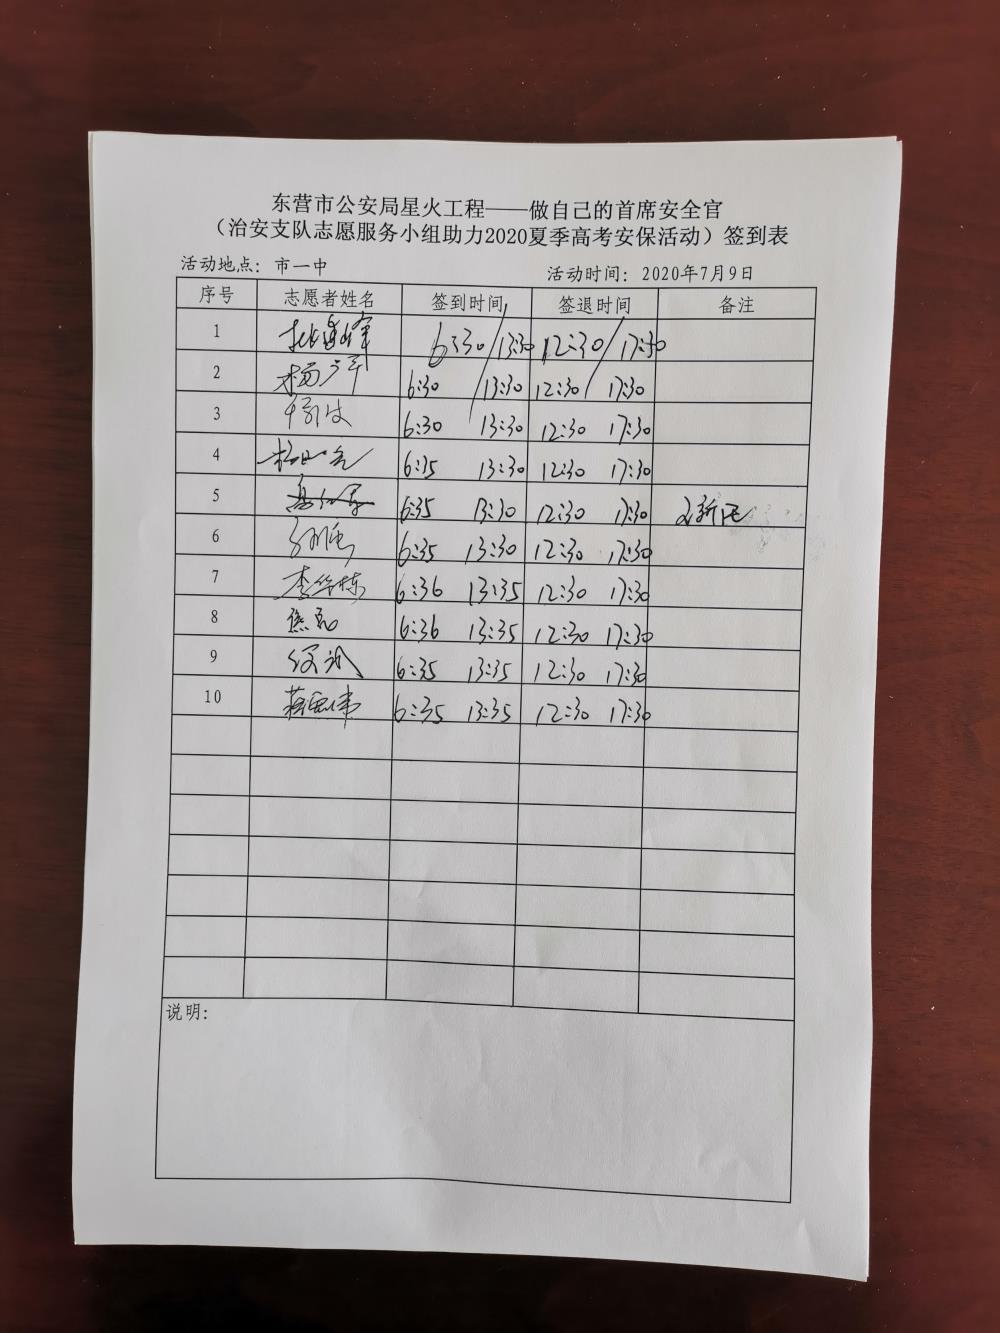 东营市公安局星火工程——做自己的首席安全官
（治安支队志愿服务小组助力2020夏季高考安保活动）签到表
活动地点：市一中 活动时间：2020年7月9日
序号 志愿者姓名 签到时间 签退时间 备注
1 6:30/13:30 12:30/17:30
2 6:30 13:30 12:30 17:30
3 6:30 13:30 12:30 17:30
4 6:35 13:30 12:30 17:30
5 6:35 13:30 12:30 17:30
6 6:35 13:30 12:30 17:30
7 李华栋 6:36 13:35 12:30 17:30
8 6:36 13:35 12:30 17:30
9 6:35 13:35 12:30 17:30
10 6:35 13:35 12:30 17:30
说明：